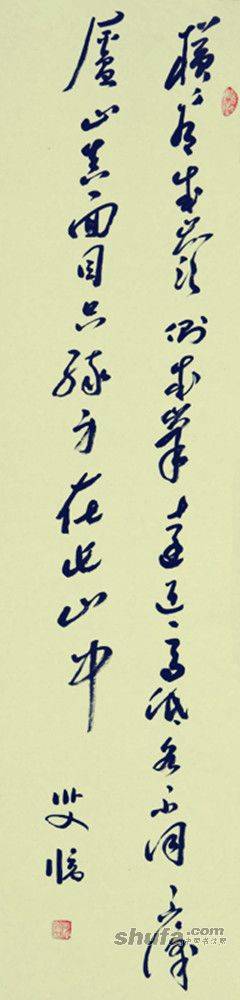 橫看成嶺側成峯遠近高低各不同不識
廬山真面目只緣身在此山中
shufa.com
中国书法网